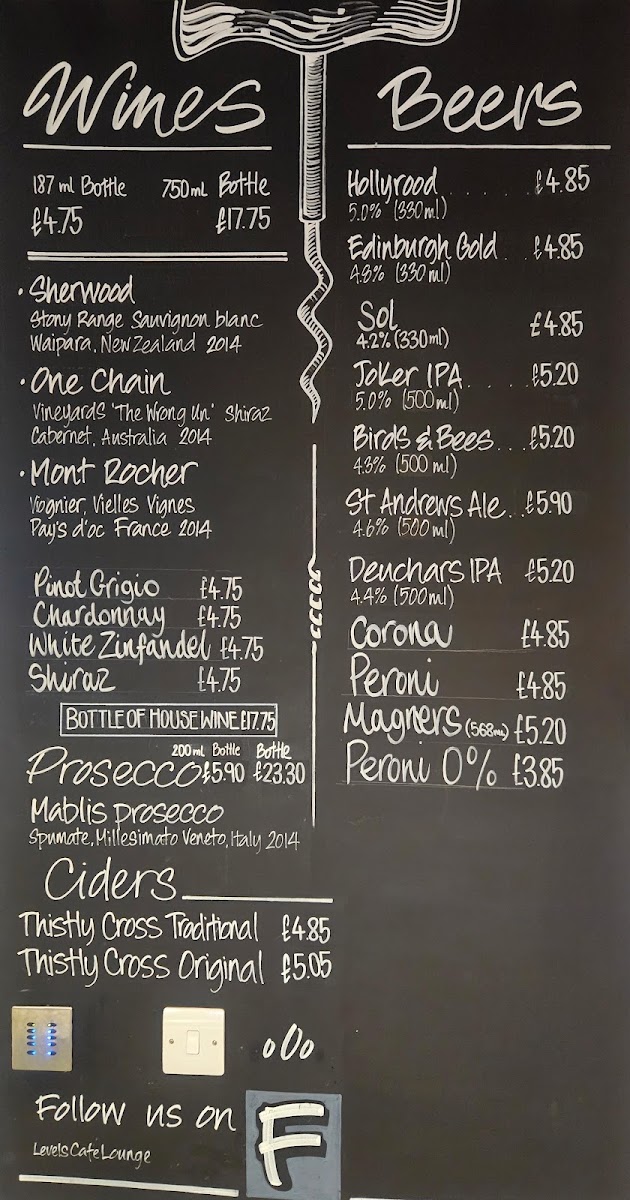 Wines
187 ml Bottle 750 ml Bottle
£4.75 £17.75
• Sherwood
Stony Range Sauvignon blanc
Waipara, New Zealand 2014
• One Chain
Vineyards 'The Wrong Un' Shiraz
Cabernet, Australia 2014
• Mont Rocher
Viognier, Vielles Vignes
Pay's d'oc France 2014
Pinot Grigio £4.75
Chardonnay £4.75
White Zinfandel £4.75
Shiraz £4.75
BOTTLE OF HOUSE WINE £17.75
200 ml Bottle Bottle
Prosecco £5.90 £23.30
Mablis prosecco
Spumate, Millesimato Veneto, Italy 2014
Ciders
Thistly Cross Traditional £4.85
Thistly Cross Original £5.05
oOo
Follow us on F
Levels Cafe Lounge
Beers
Hollyrood . . . . . £4.85
5.0% (330ml)
Edinburgh Gold . . £4.85
4.8% (330ml)
Sol £4.85
4.2% (330ml)
Joker IPA . . . . . £5.20
5.0% (500ml)
Birds & Bees . . . £5.20
4.3% (500ml)
St Andrews Ale . . £5.90
4.6% (500ml)
Deuchars IPA £5.20
4.4% (500ml)
Corona £4.85
Peroni £4.85
Magners (568ml) £5.20
Peroni 0% £3.85